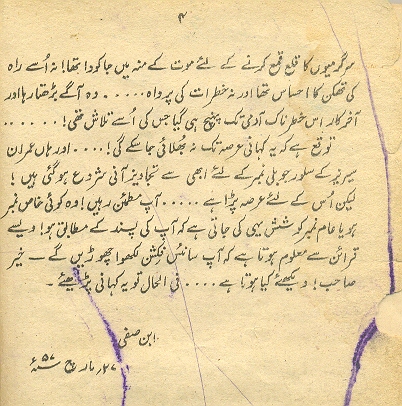 ۴
سرگرمیوں کا قلع قمع کرنے کے لئے موت کے منہ میں جا کودا تھا! نہ اُسے راہ
کی تھکن کا احساس تھا اور نہ خطرات کی پرواہ ..... وہ آگے بڑھتا رہا اور
آخرکار اس خطرناک آدمی تک پہنچ ہی گیا جس کی اُسے تلاش تھی! .....
توقع ہے کہ یہ کہانی عرصہ تک نہ بھلائی جا سکے گی! .... اور ہاں عمران
سیریز کے سلور جوبلی نمبر کے لئے ابھی سے تجاویز آنی شروع ہو گئی ہیں!
لیکن اُس کے لئے عرصہ پڑا ہے ..... آپ مطمئن رہیں! وہ کوئی خاص نمبر
ہو یا عام نمبر کوشش یہی کی جاتی ہے کہ آپ کی پسند کے مطابق ہو! ویسے
قرائن سے معلوم ہوتا ہے کہ آپ سائنس فکشن لکھوا چھوڑیں گے ۔ خیر
صاحب! دیکھئے کیا ہوتا ہے .... فی الحال تو یہ کہانی پڑھیئے ۔
ابن صفی
۲۷؍ مارچ ۵۷ء